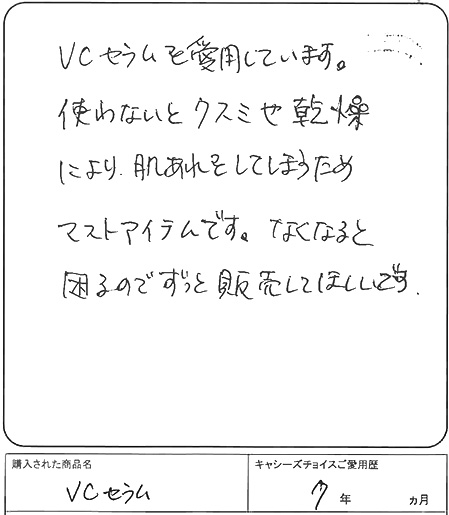 VCセラムを愛用しています。
使わないとクスミや乾燥
により、肌あれをしてしまうため
マストアイテムです。なくなると
困るのでずっと販売してほしいです.
購入された商品名
キャシーズチョイスご愛用歴
VCセラム
7年 ヵ月